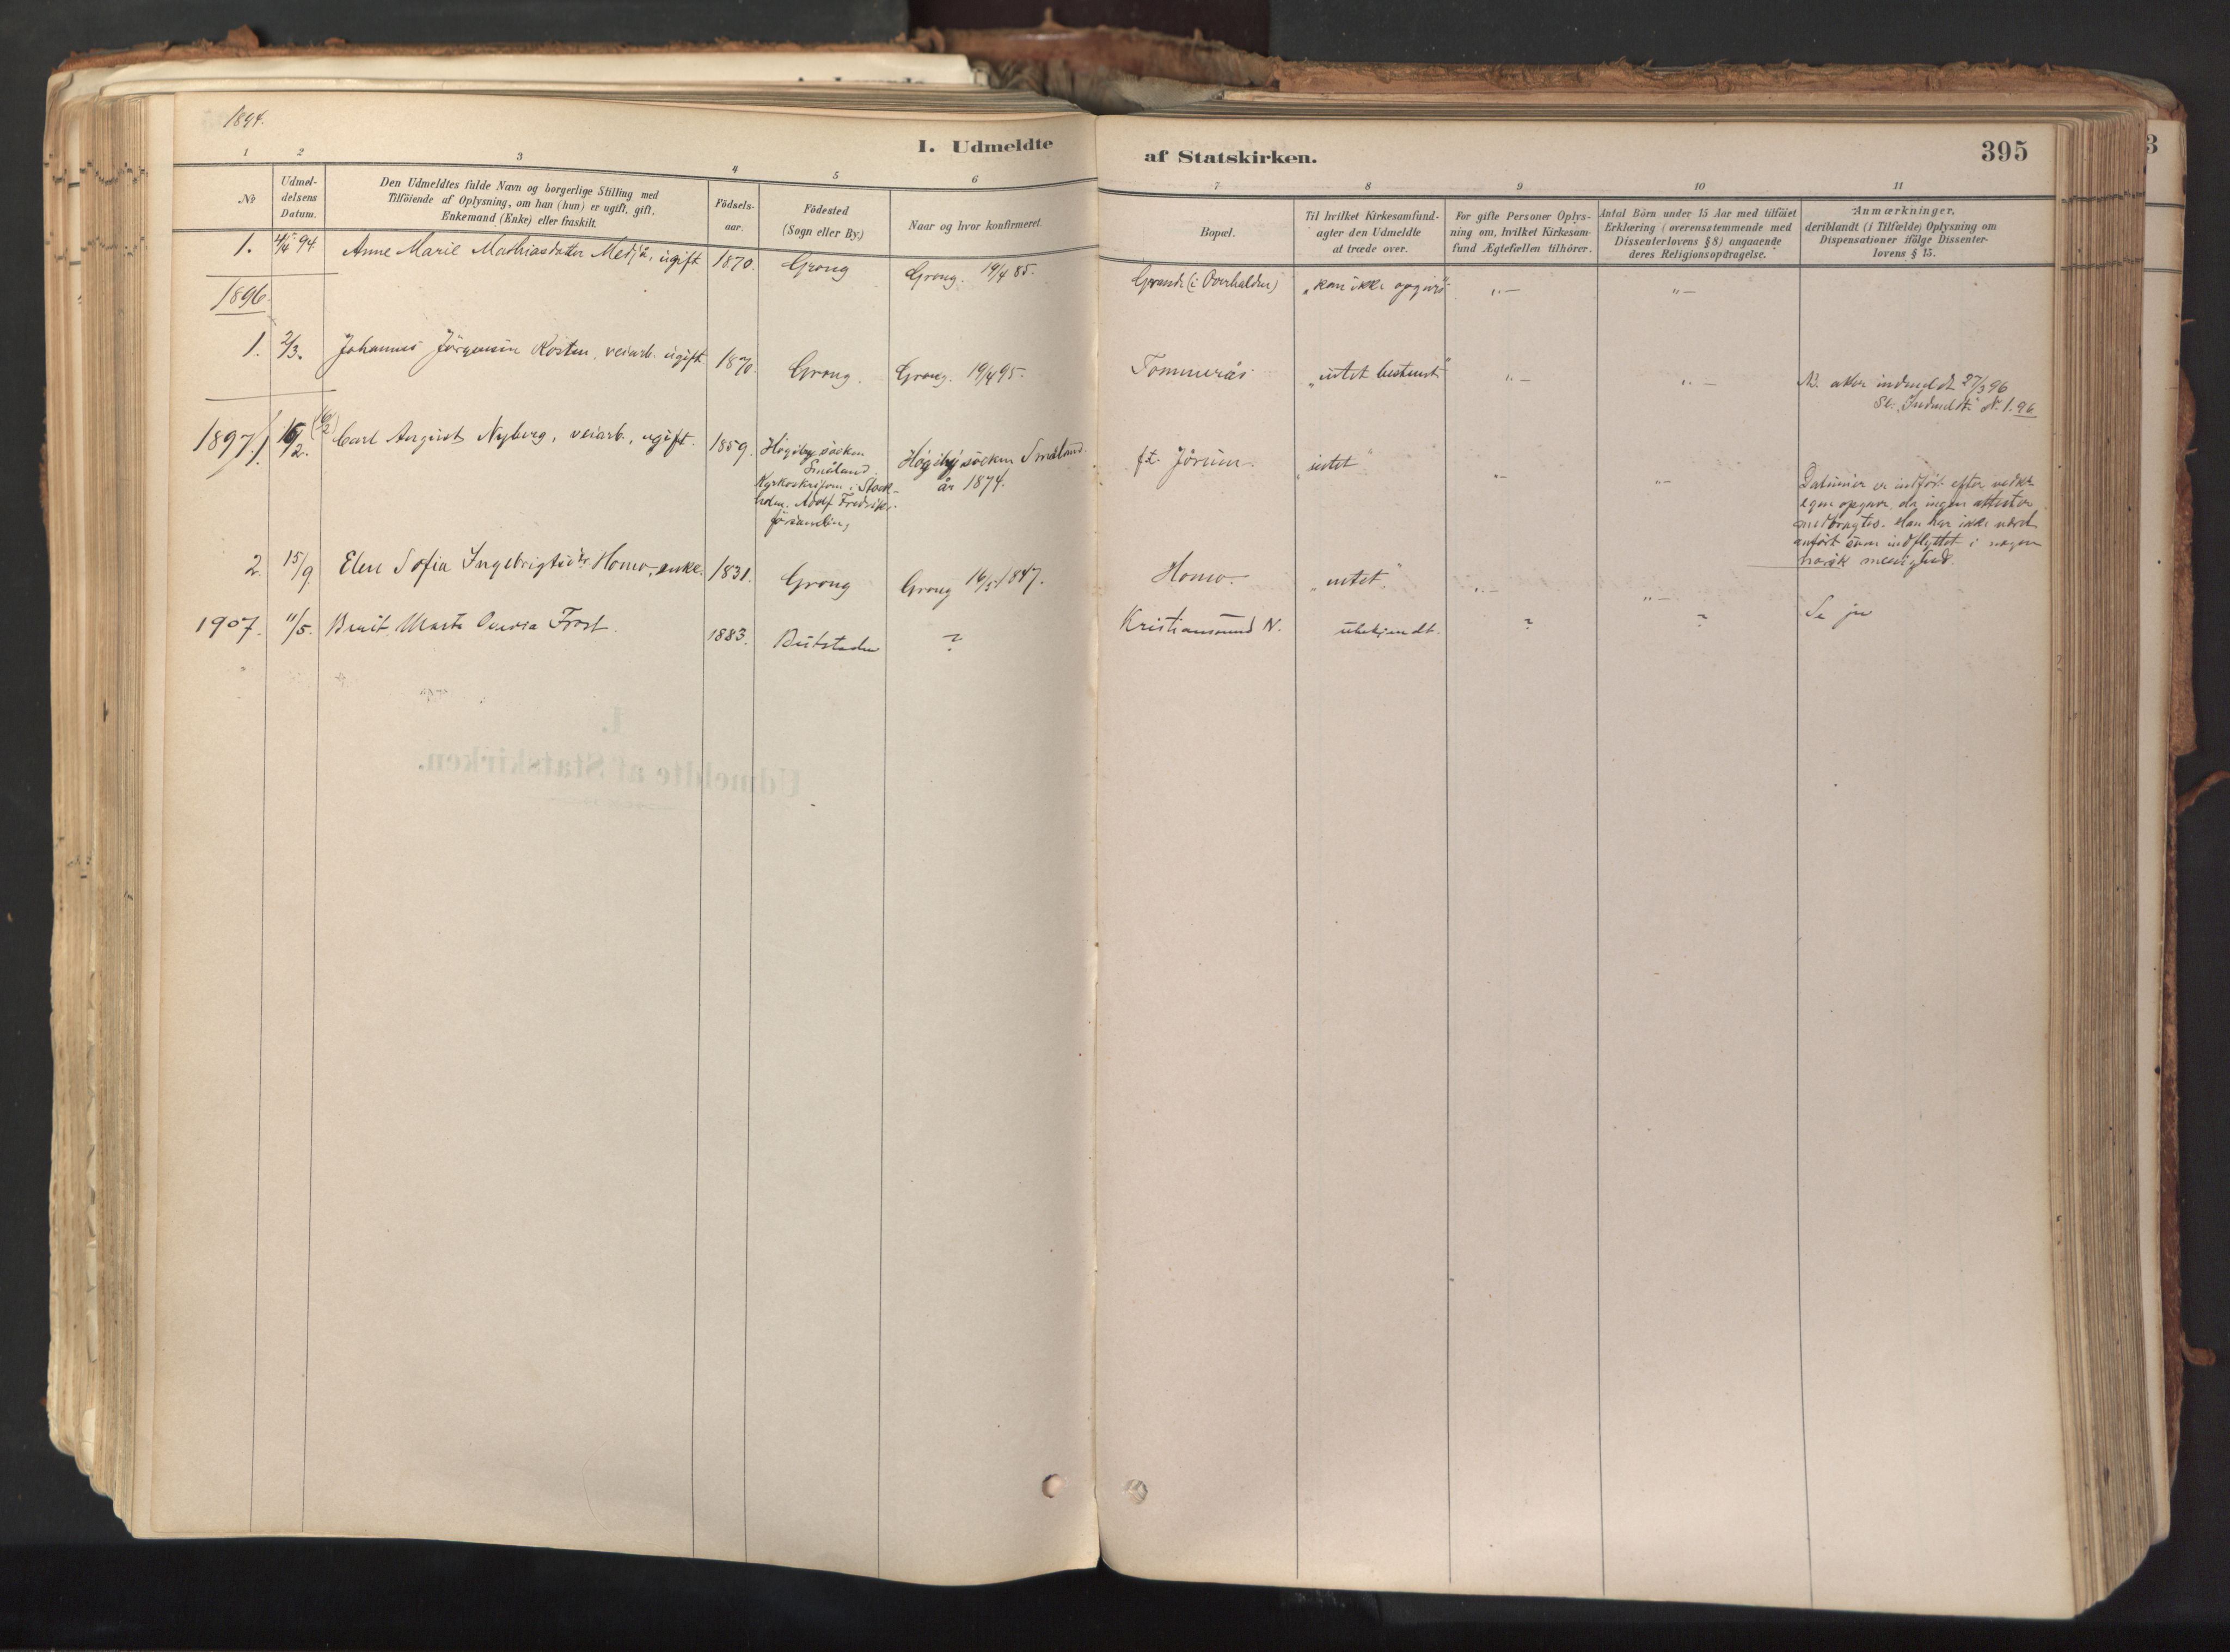 1894.
I. Udmeldte
af Statskirken.
395
1 2 3 4 5 6 7 8 9 10 11
No
Udmel-
delsens
Datum.
Den Udmeldtes fulde Navn og borgerlige Stilling med
Tilföiende af Oplysning, om han (hun) er ugift, gift,
Enkemand (Enke) eller fraskilt.
Födsels-
aar.
Födested
(Sogn eller By.)
Naar og hvor konfirmeret.
Bopæl.
Til hvilket Kirkesamfund-
agter den Udmeldte
at træde over.
For gifte Personer Oplys-
ning om, hvilket Kirkesam-
fund Ægtefællen tilhörer.
Antal Börn under 15 Aar med tilföiet
Erklæring (overensstemmende med
Dissenterlovens § 8) angaaende
deres Religionsopdragelse.
Anmærkninger,
deriblandt (i Tilfælde) Oplysning om
Dispensationer ifölge Dissenter-
lovens § 15.
1. 94. Anne Marie Mathiasdatter Medjå, ugift 1870. Grong Grong. 19/4 85. (i Overhalden) "kan ikke opgives" "— "—
1896.
1. 2/3. Johannes Jörgensen Rosten, veiarb. ugift 1870. Grong. Grong. 19/4 95. Tommerås "intet bestemt" "— "—
N. atter indmeldt 27/3 96
Se. "Indmeldte" N. 1. 96
1897 1. 15/2. (16/2) Carl August Nyberg, veiarb., ugift. 1859. Högsby socken
Småland
Kyrkoskrifven i Stock-
holm. Adolf Fredriks
församling
Högsby socken Småland
år 1874.
f.t. Jörum. "intet" "— "—
Datumer er indfört efter vedk.
egen opgave, da ingen attester
medbragtes. Han har ikke været
anfört som indflyttet i nogen
norsk menighed.
2. 15/9. Elen Sofia Ingebrigtsdtr. Homo, enke. 1831. Grong Grong 16/5 1847. Homo. "intet." "— "—
1907. 11/5. Marta Frost. 1883. Beitstaden ? Kristiansund N. ubekjendt. ? ? Se
I.
Udmeldte af Statskirken.
3